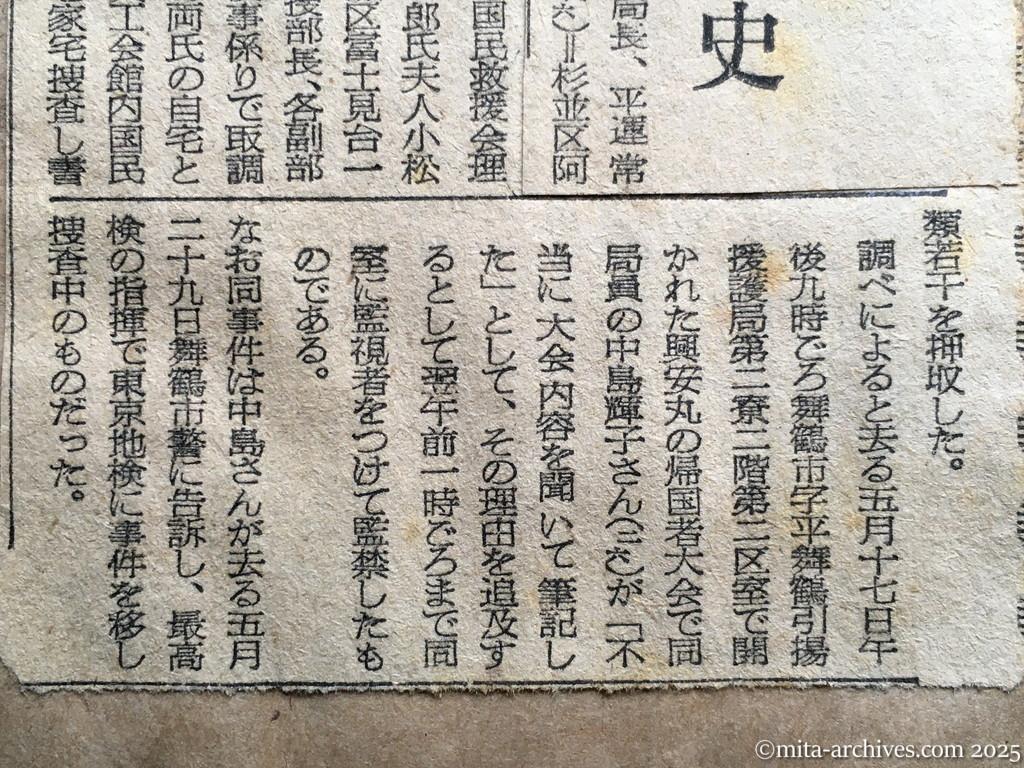 史
局長、平運常
＝杉並区阿
国民救援会理
郎氏夫人小松
区富士見台一
援部長、各副部
事係りで取調
両氏の自宅と
工会館内国民
家宅捜査し書
類若干を押収した。
調べによると去る五月十七日午
後九時ごろ舞鶴市字平舞鶴引揚
援護局第二寮二階第二区室で開
かれた興安丸の帰国者大会で同
局員の中島輝子さんが「不
当に大会内容を聞いて筆記し
た」として、その理由を追及す
るとして翌午前一時ごろまで同
室に監視者をつけて監禁したも
のである。
なお同事件は中島さんが去る五月
二十九日舞鶴市警に告訴し、最高
検の指揮で東京地検に事件を移し
捜査中のものだった。
©mita-archives.com 2025